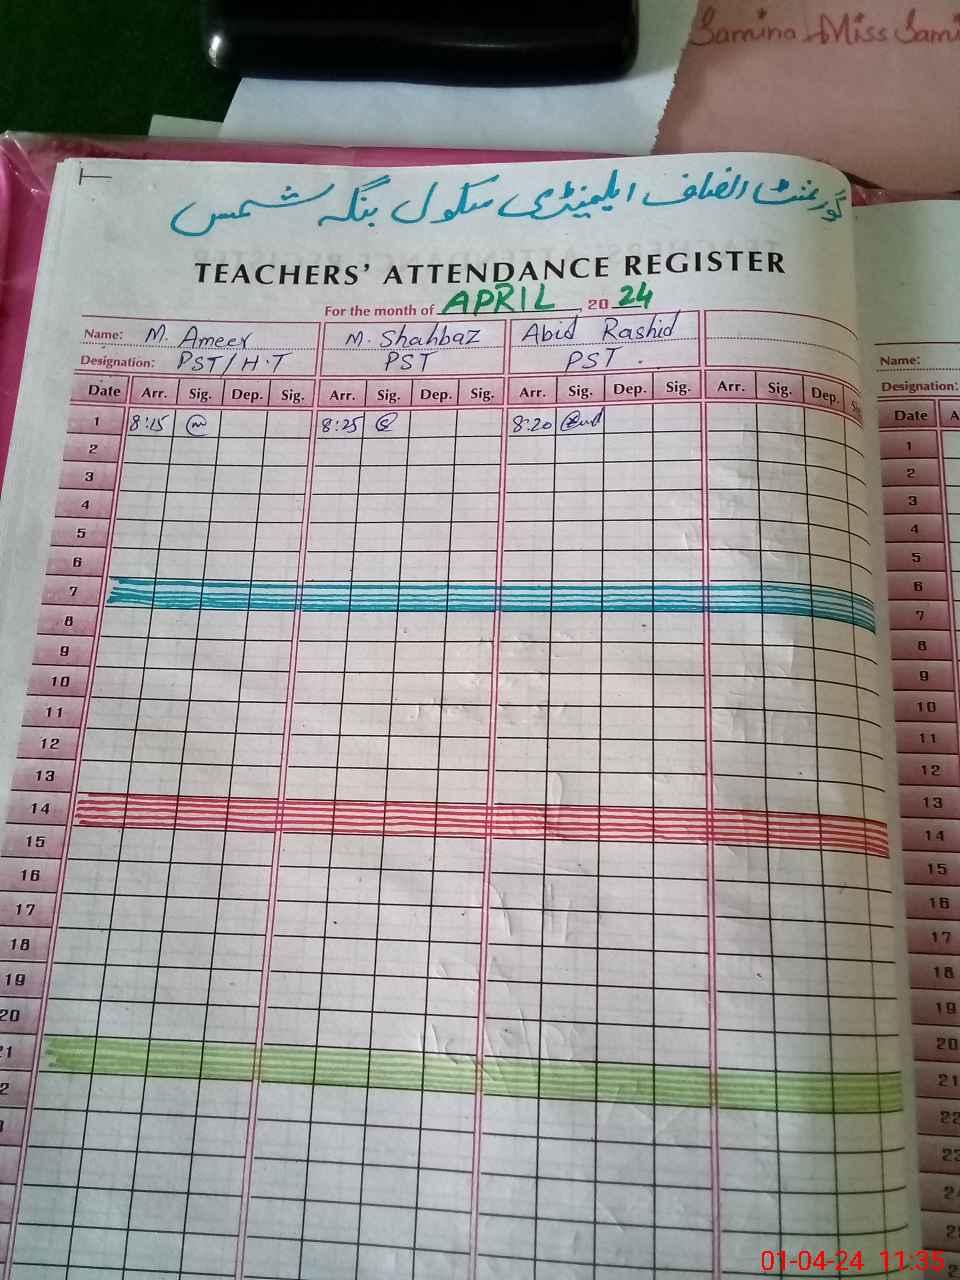 Samina Miss Sami
گورنمنٹ انصاف ایلیمنٹری سکول بنگہ شمس
TEACHERS' ATTENDANCE REGISTER
For the month of APRIL 20 24
Name: M. Ameer M. Shahbaz Abid Rashid
Designation: PST/H.T PST PST.
Date Arr. Sig. Dep. Sig. Arr. Sig. Dep. Sig. Arr. Sig. Dep. Sig. Arr. Sig. Dep.
1 8:15 8:25 8:20
2
3
4
5
6
7
8
9
10
11
12
13
14
15
16
17
18
19
20
Name:
Designation:
Date
1
2
3
4
5
6
7
8
9
10
11
12
13
14
15
16
17
18
19
20
21
22
01-04-24 11:35